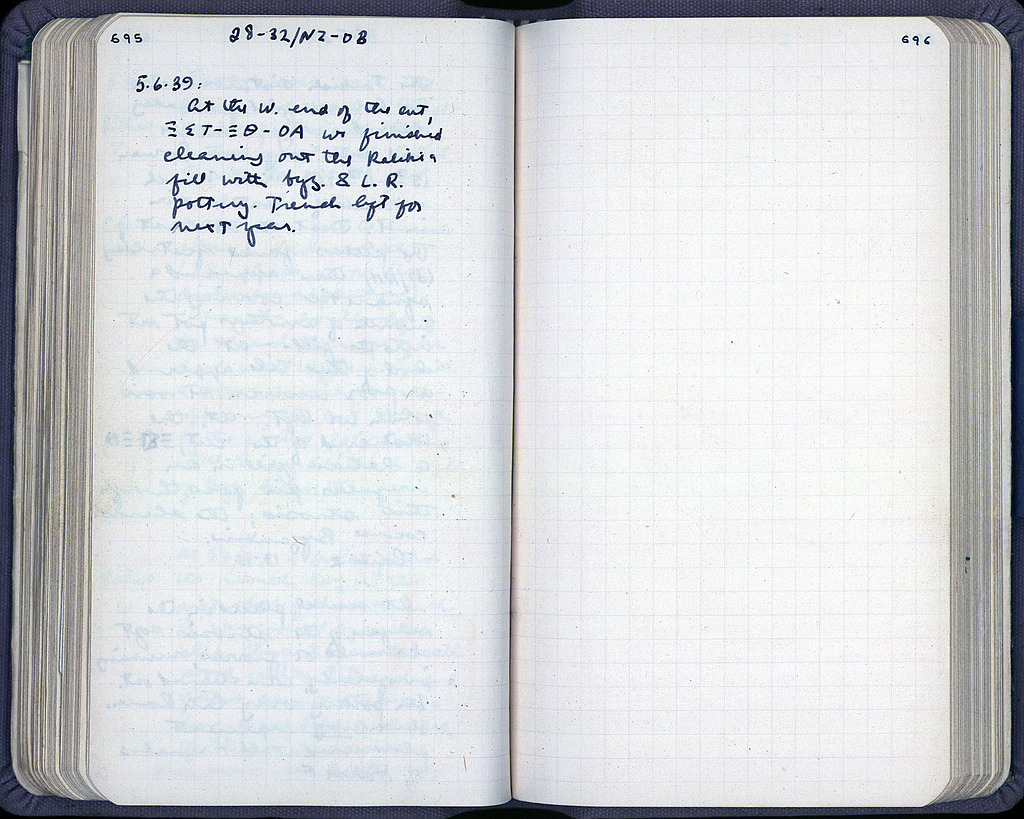 695
28-32/ΝΖ-ΟΒ
696
5.6.39:
At the W. end of the cut,
ΞΣΤ-ΞΘ-ΟΑ we finished
cleaning out the Kalikia
fill with byz. & L. R.
pottery. Trench left for
next year.